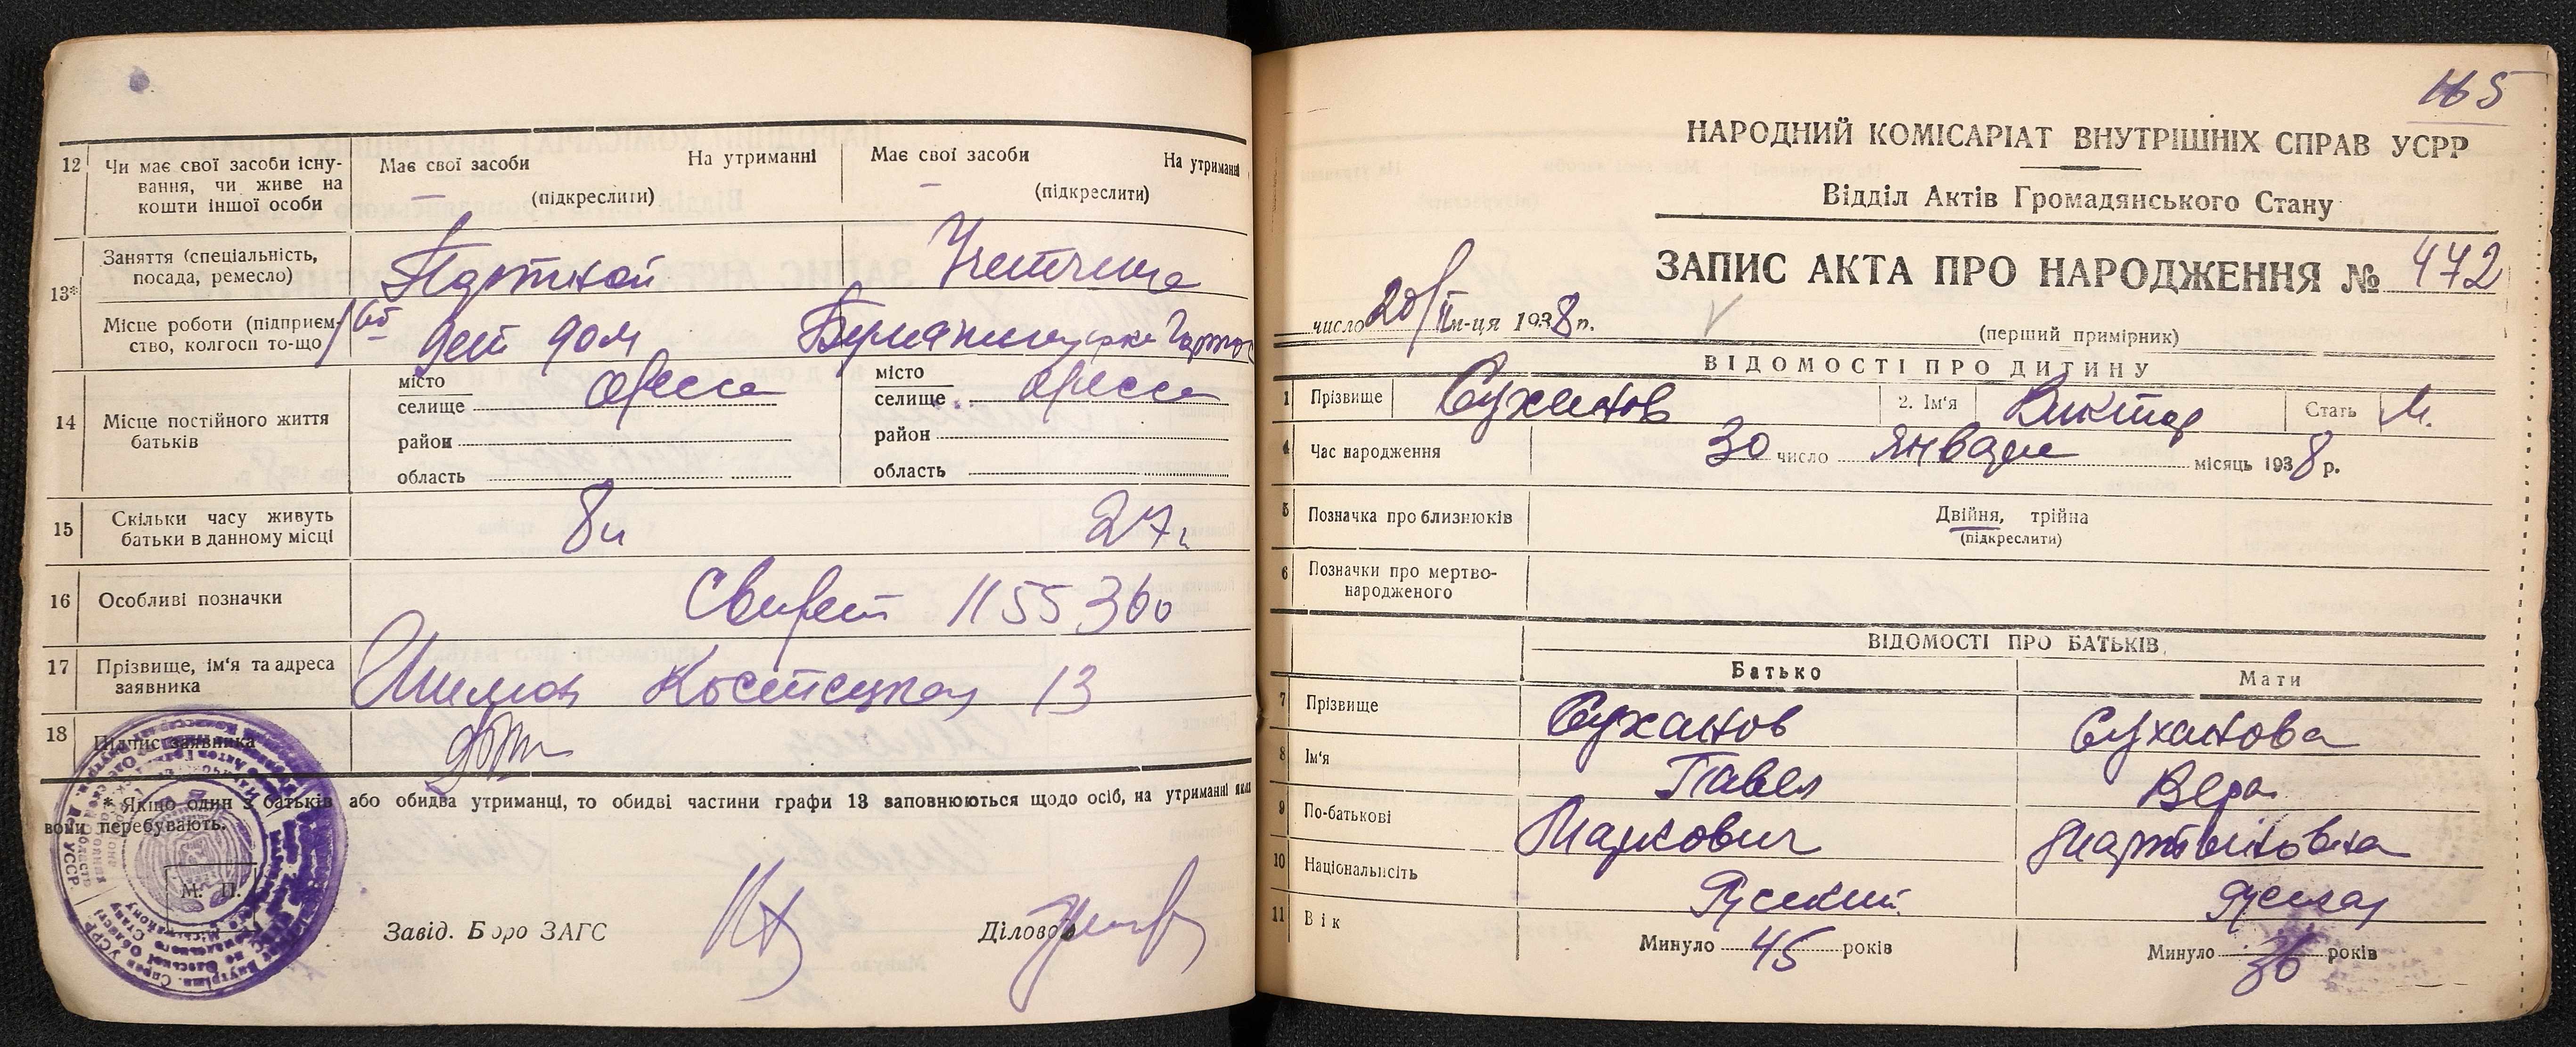 12 Чи має свої засоби існування, чи живе на кошти іншої особи
Має свої засоби На утриманні
(підкреслити)
Має свої засоби На утриманні
(підкреслити)
13* Заняття (спеціальність, посада, ремесло)
Портной
Місце роботи (підприємство, колгосп то-що)
дет дом
14 Місце постійного життя батьків
місто
селище Одесса
район
область
місто
селище Одесса
район
область
15 Скільки часу живуть батьки в данному місці
8 л
27 л
16 Особливі позначки
Свидет 1155360
17 Прізвище, ім'я та адреса заявника
Костецкая 13
18 Підпис заявника
* Якщо один з батьків або обидва утриманці, то обидві частини графи 13 заповнюються щодо осіб, на утриманні яких
вони перебувають.
М. П.
Завід. Бюро ЗАГС
Діловод
165
НАРОДНИЙ КОМІСАРІАТ ВНУТРІШНІХ СПРАВ УСРР
Відділ Актів Громадянського Стану
ЗАПИС АКТА ПРО НАРОДЖЕННЯ № 472
число 20/II м-ця 1938 р.
(перший примірник)
ВІДОМОСТІ ПРО ДИТИНУ
1 Прізвище Суханов 2. Ім'я Виктор Стать М.
4 Час народження 30 число января місяць 1938 р.
5 Позначка про близнюків Двійня, трійна
(підкреслити)
6 Позначки про мертвонародженого
ВІДОМОСТІ ПРО БАТЬКІВ
Батько Мати
7 Прізвище Суханов Суханова
8 Ім'я Павел Вера
9 По-батькові Маркович Мартыновна
10 Національність Русский Русская
11 Вік Минуло 45 років Минуло 36 років